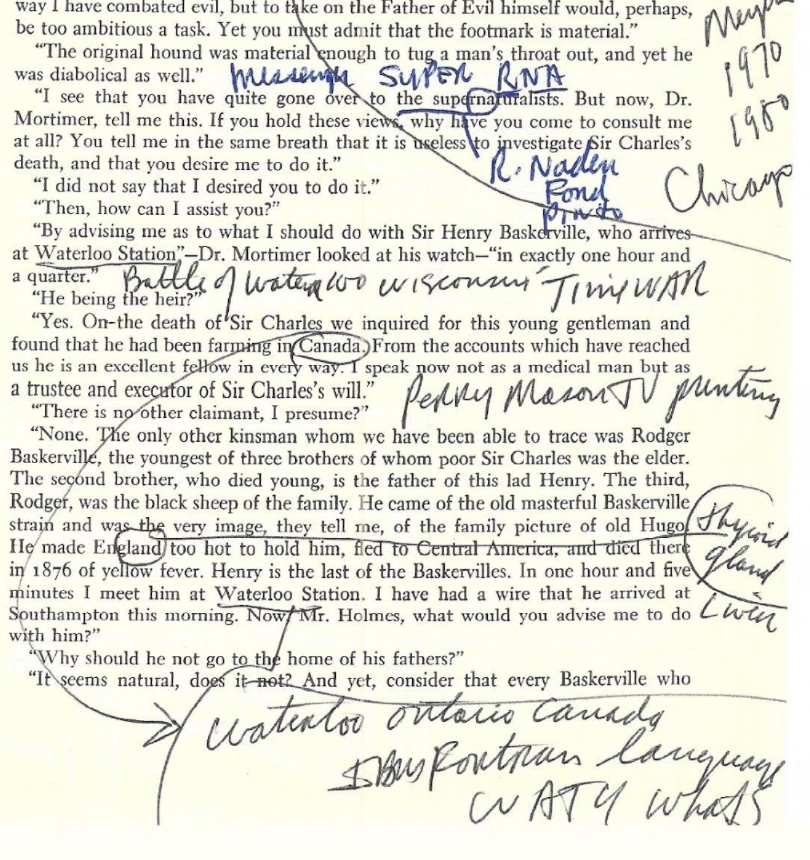 way I have combated evil, but to take on the Father of Evil himself would, perhaps,
be too ambitious a task. Yet you must admit that the footmark is material.”
“The original hound was material enough to tug a man’s throat out, and yet he
was diabolical as well.”
messenger SUPER RNA
1970
1980
“I see that you have quite gone over to the supernaturalists. But now, Dr.
Mortimer, tell me this. If you hold these views, why have you come to consult me
at all? You tell me in the same breath that it is useless to investigate Sir Charles’s
death, and that you desire me to do it.”
R. Naden
Pond
Pinto
Chicago
“I did not say that I desired you to do it.”
“Then, how can I assist you?”
“By advising me as to what I should do with Sir Henry Baskerville, who arrives
at Waterloo Station”—Dr. Mortimer looked at his watch—“in exactly one hour and
a quarter.”
Battle of Waterloo Wisconsin Time WAR
“He being the heir?”
“Yes. On the death of Sir Charles we inquired for this young gentleman and
found that he had been farming in Canada. From the accounts which have reached
us he is an excellent fellow in every way. I speak now not as a medical man but as
a trustee and executor of Sir Charles’s will.”
Perry Mason TV printing
“There is no other claimant, I presume?”
“None. The only other kinsman whom we have been able to trace was Rodger
Baskerville, the youngest of three brothers of whom poor Sir Charles was the elder.
The second brother, who died young, is the father of this lad Henry. The third,
Rodger, was the black sheep of the family. He came of the old masterful Baskerville
strain and was the very image, they tell me, of the family picture of old Hugo.
He made England too hot to hold him, fled to Central America, and died there
in 1876 of yellow fever. Henry is the last of the Baskervilles. In one hour and five
minutes I meet him at Waterloo Station. I have had a wire that he arrived at
Southampton this morning. Now, Mr. Holmes, what would you advise me to do
with him?”
Thyroid
gland
Liver
“Why should he not go to the home of his fathers?”
“It seems natural, does it not? And yet, consider that every Baskerville who
Waterloo Ontario Canada
Fortran language
WAT4 What5